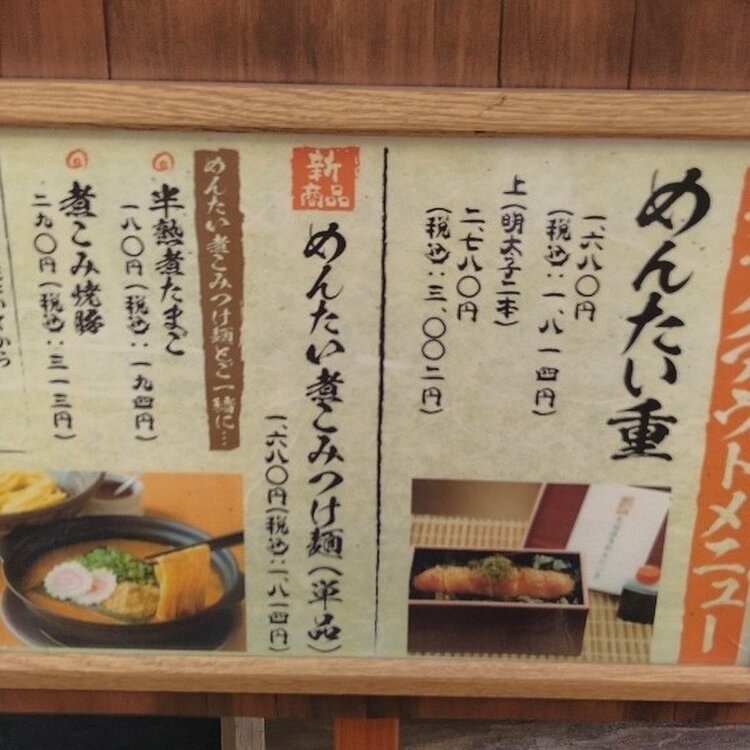 テイクアウトメニュー
めんたい重
一、六八〇円
(税込:一、八一四円)
上(明太子二本)
二、七八〇円
(税込:三、〇〇二円)
新
商品
めんたい煮こみつけ麺(単品)
一、六八〇円(税込:一、八一四円)
めんたい煮こみつけ麺とご一緒に…
半熟煮たまご
一八〇円(税込:一九四円)
煮こみ焼豚
二九〇円(税込:三一三円)